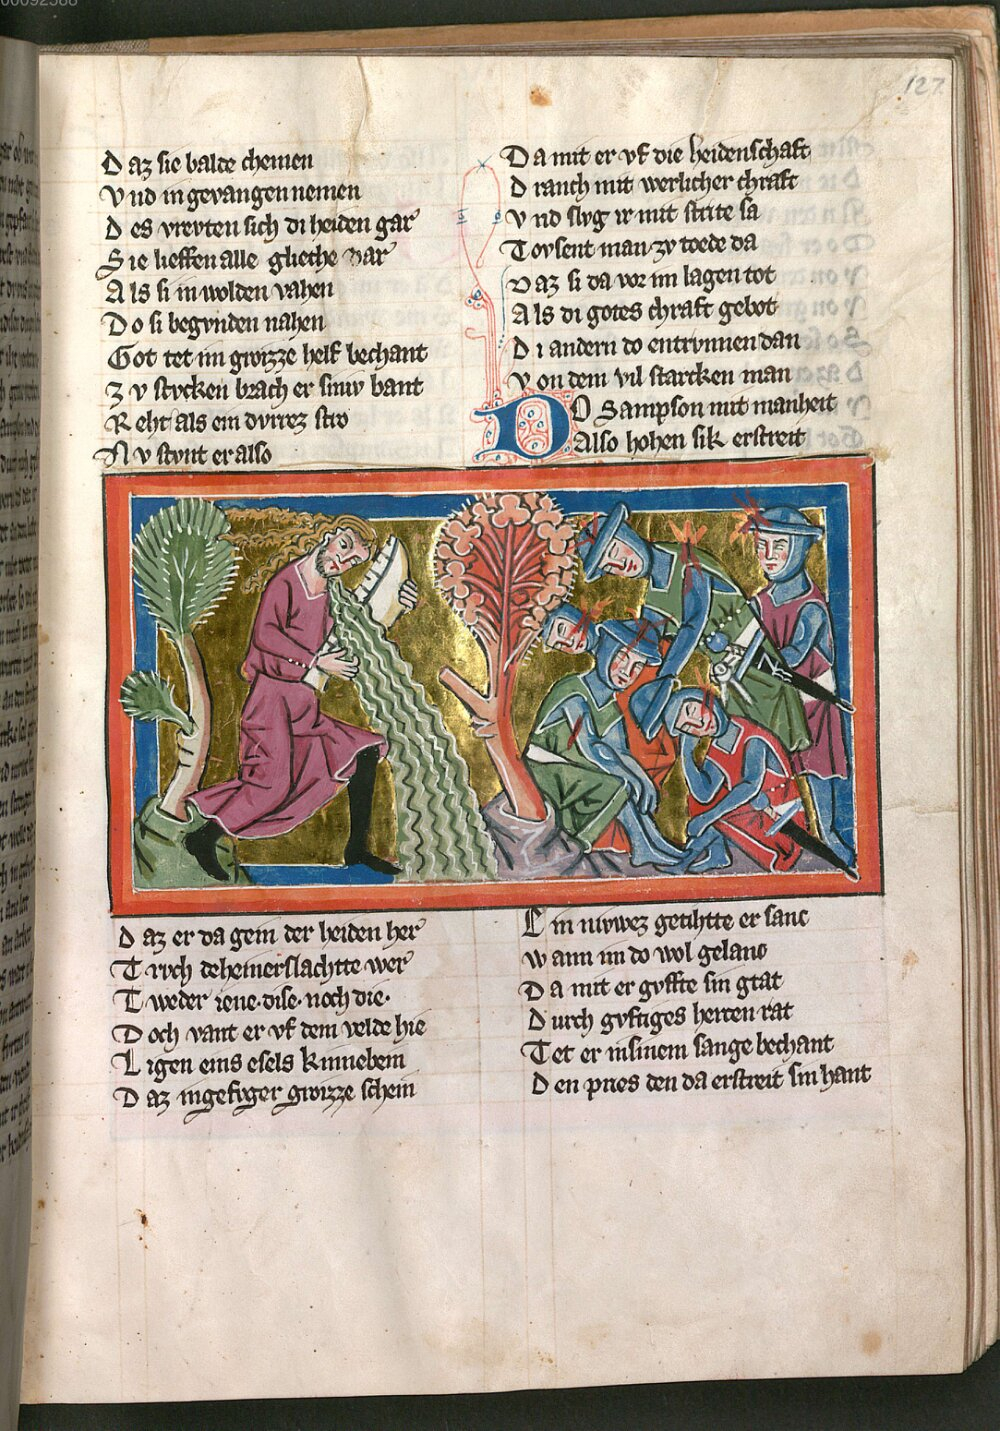 00092588
127
Daz sie balde chemen
Vnd in gevangen nemen
Des vrevten sich di heiden gar
Sie lieffen alle gliche dar
Als si in wolden vahen
Do si begvnden nahen
Got tet im grozze helf bechant
Zv stvcken brach er siniv bant
Reht als ein dvrrez stro
Nv stvnt er also
Daz er da gein der heiden her
Trvch deheinerslachtte wer
Tweder iene·dise·noch die·
Doch vant er vf dem velde hie
Ligen eins esels kinnebein
Daz ingefvger grozze schein
Da mit er vf die heidenschaft
Drauch mit werlicher chraft
Vnd slvg ir mit strite sa
Tovsent man zv tode da
Daz si da vor im lagen tot
Als di gotes chraft gebot
Di andern do entrvnnen dan
Von dem vil starcken man
DO Sampson mit manheit
Also hohen sik erstreit
Ein nivwez getihtte er sanc
Wann im do wol gelanc
Da mit er gvffte sin gtat
Durch gvftiges hercen rat
Tet er insinem sange bechant
Den pries den da erstreit sin hant